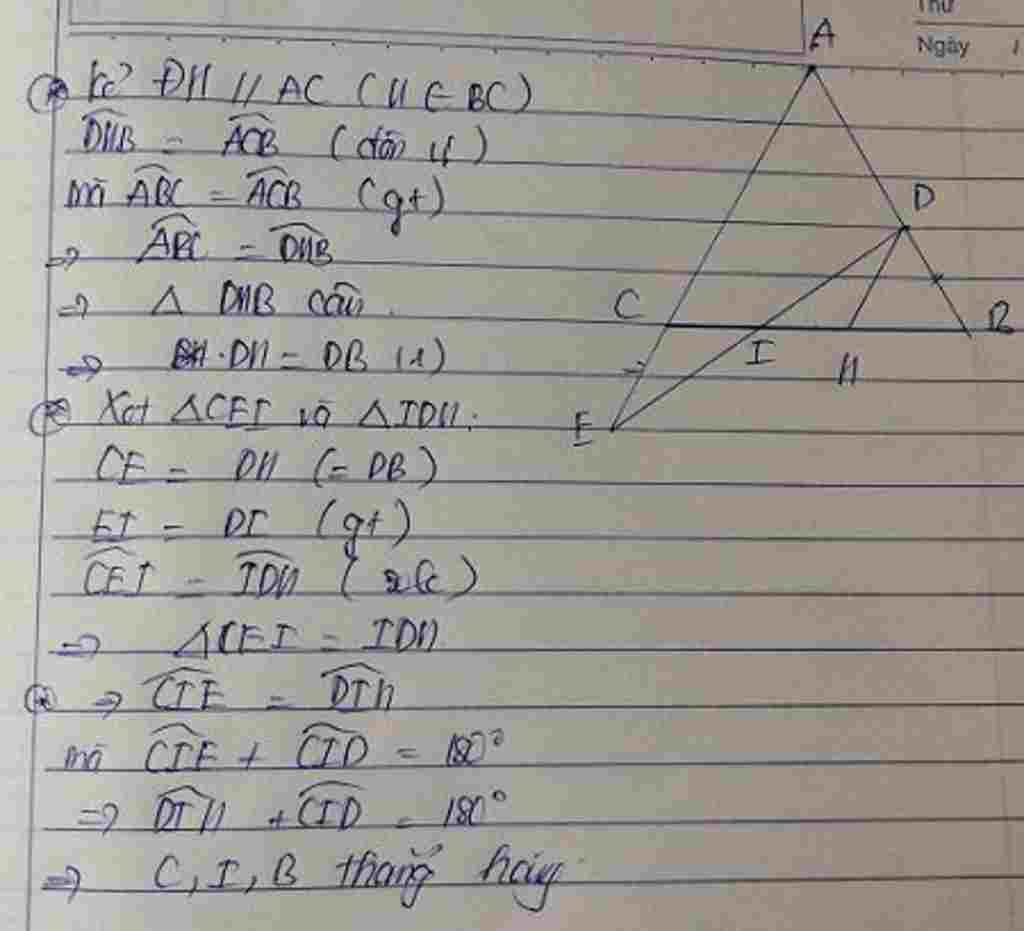 Thứ
Ngày
Kẻ DH // AC (H ∈ BC)
DHB = ACB (đồng vị)
mà ABC = ACB (gt)
=> ABC = DHB
=> △ DHB cân.
=> DH = DB (1)
Xét △CEI và △IDH:
CE = DH (= DB)
EI = DI (gt)
CEI = IDH (slt)
=> △CEI = IDH
=> CIE = DIH
mà CIE + CID = 180°
=> DIH + CID = 180°
=> C, I, B thẳng hàng
A
D
C
B
I
H
E